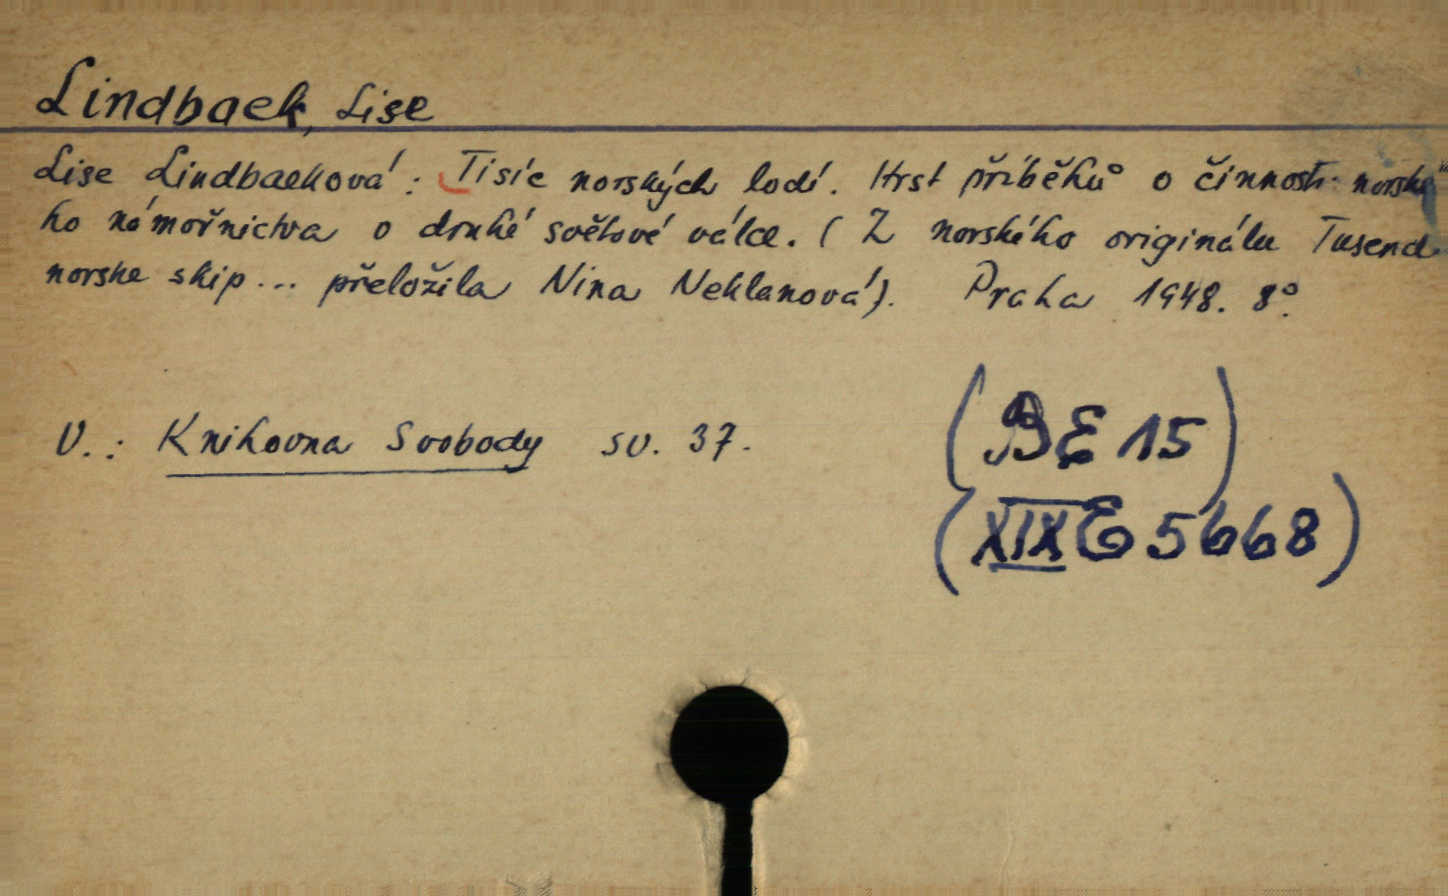 Lindbaek, Lise
Lise Lindbaeková: Tisíc norských lodí. Hrst příběhů o činnosti norské"
ho námořnictva o druhé světové válce. (Z norského originálu Tusend
norske skip... přeložila Nina Neklanová). Praha 1948. 8°.
V.: Knihovna Svobody sv. 37.
(BE 15)
(XIX E 5668)